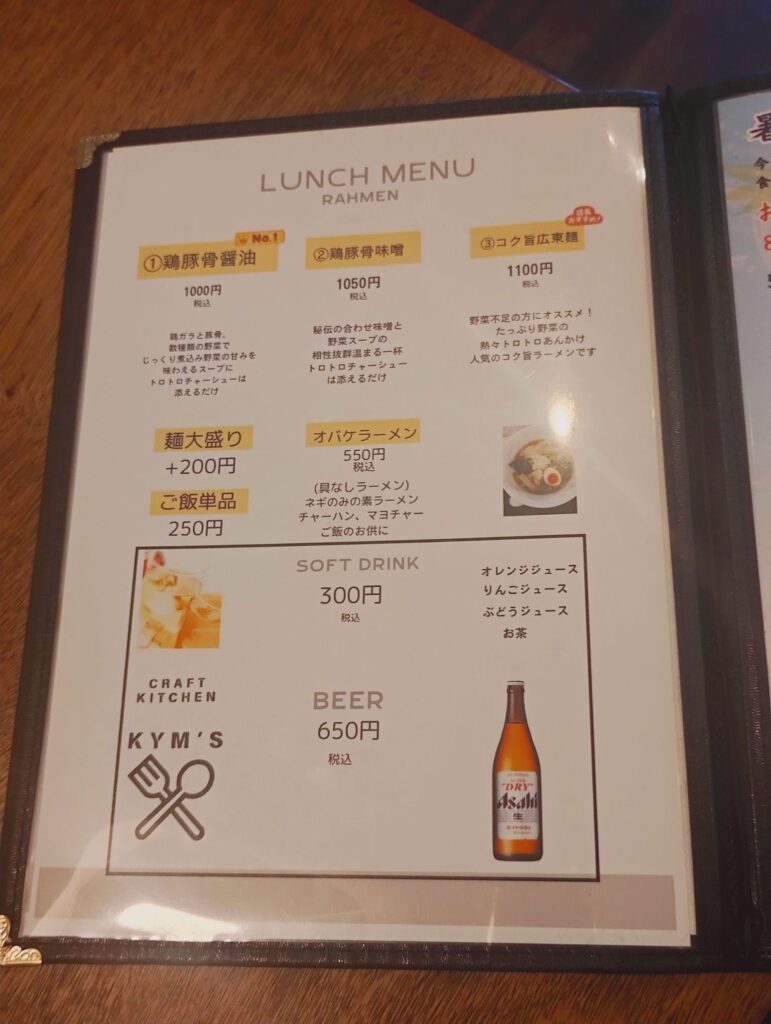 LUNCH MENU
RAHMEN
No.1
①鶏豚骨醤油
1000円
税込
鶏ガラと豚骨。
数種類の野菜で
じっくり煮込み野菜の甘みを
味わえるスープに
トロトロチャーシューは
添えるだけ
②鶏豚骨味噌
1050円
税込
秘伝の合わせ味噌と
野菜スープの
相性抜群温まる一杯
トロトロチャーシュー
は添えるだけ
店長
おすすめ!
③コク旨広東麺
1100円
税込
野菜不足の方にオススメ!
たっぷり野菜の
熱々トロトロあんかけ
人気のコク旨ラーメンです
麺大盛り
+200円
ご飯単品
250円
オバケラーメン
550円
税込
(具なしラーメン)
ネギのみの素ラーメン
チャーハン、マヨチャー
ご飯のお供に
SOFT DRINK
300円
税込
オレンジジュース
りんごジュース
ぶどうジュース
お茶
CRAFT
KITCHEN
KYM'S
BEER
650円
税込
"DRY"
Asahi
生
暑
今
食